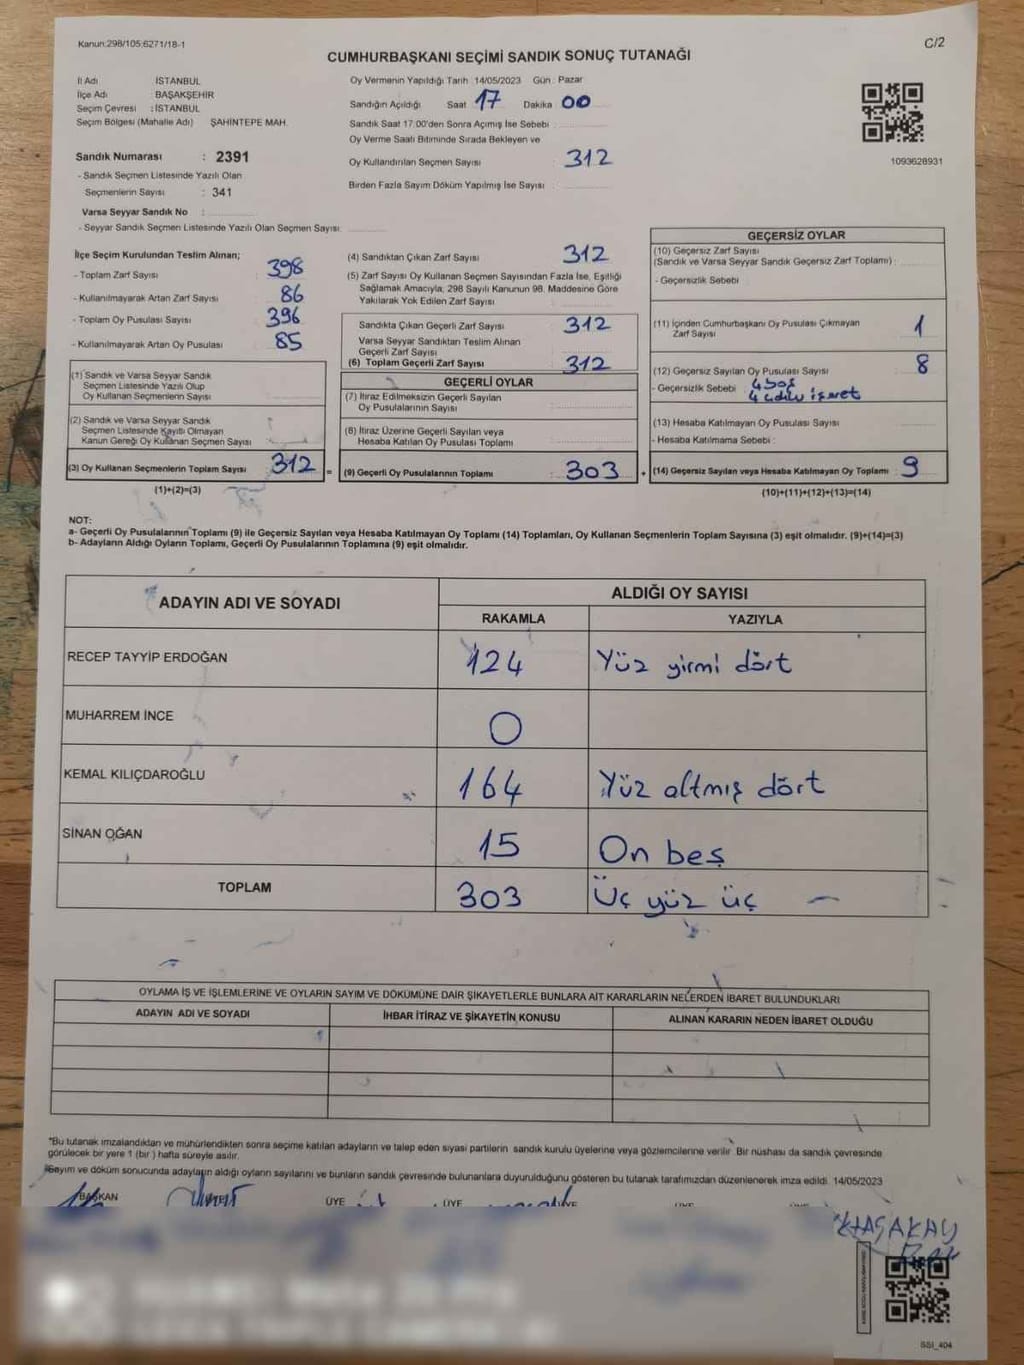 Kanun:298/105;6271/18-1
C/2
CUMHURBAŞKANI SEÇİMİ SANDIK SONUÇ TUTANAĞI
İl Adı İSTANBUL
İlçe Adı BAŞAKŞEHİR
Seçim Çevresi : İSTANBUL
Seçim Bölgesi (Mahalle Adı) ŞAHİNTEPE MAH.
Sandık Numarası : 2391
- Sandık Seçmen Listesinde Yazılı Olan
Seçmenlerin Sayısı : 341
Varsa Seyyar Sandık No :
- Seyyar Sandık Seçmen Listesinde Yazılı Olan Seçmen Sayısı:
Oy Vermenin Yapıldığı Tarih :14/05/2023 Gün : Pazar
Sandığın Açıldığı Saat 17 Dakika 00
Sandık Saat 17:00'den Sonra Açımış İse Sebebi :
Oy Verme Saati Bitiminde Sırada Bekleyen ve
Oy Kullandırılan Seçmen Sayısı : 312
Birden Fazla Sayım Döküm Yapılmış İse Sayısı :
1093628931
İlçe Seçim Kurulundan Teslim Alınan;
- Toplam Zarf Sayısı : 398
- Kullanılmayarak Artan Zarf Sayısı : 86
- Toplam Oy Pusulası Sayısı : 396
- Kullanılmayarak Artan Oy Pusulası : 85
(1) Sandık ve Varsa Seyyar Sandık
Seçmen Listesinde Yazılı Olup
Oy Kullanan Seçmenlerin Sayısı
(2) Sandık ve Varsa Seyyar Sandık
Seçmen Listesinde Kayıtlı Olmayan
Kanun Gereği Oy Kullanan Seçmen Sayısı
(3) Oy Kullanan Seçmenlerin Toplam Sayısı 312
(1)+(2)=(3)
(4) Sandıktan Çıkan Zarf Sayısı : 312
(5) Zarf Sayısı Oy Kullanan Seçmen Sayısından Fazla İse, Eşitliği
Sağlamak Amacıyla; 298 Sayılı Kanunun 98. Maddesine Göre
Yakılarak Yok Edilen Zarf Sayısı :
Sandıkta Çıkan Geçerli Zarf Sayısı : 312
Varsa Seyyar Sandıktan Teslim Alınan
Geçerli Zarf Sayısı :
(6) Toplam Geçerli Zarf Sayısı : 312
GEÇERLİ OYLAR
(7) İtiraz Edilmeksizin Geçerli Sayılan
Oy Pusulalarının Sayısı
(8) İtiraz Üzerine Geçerli Sayılan veya
Hesaba Katılan Oy Pusulası Toplamı
= (9) Geçerli Oy Pusulalarının Toplamı 303 +
GEÇERSİZ OYLAR
(10) Geçersiz Zarf Sayısı
(Sandık ve Varsa Seyyar Sandık Geçersiz Zarf Toplamı) :
- Geçersizlik Sebebi :
(11) İçinden Cumhurbaşkanı Oy Pusulası Çıkmayan
Zarf Sayısı 1
(12) Geçersiz Sayılan Oy Pusulası Sayısı 8
- Geçersizlik Sebebi : 4 boş
(13) Hesaba Katılmayan Oy Pusulası Sayısı
- Hesaba Katılmama Sebebi :
(14) Geçersiz Sayılan veya Hesaba Katılmayan Oy Toplamı 9
(10)+(11)+(12)+(13)=(14)
NOT:
a- Geçerli Oy Pusulalarının Toplamı (9) ile Geçersiz Sayılan veya Hesaba Katılmayan Oy Toplamı (14) Toplamları, Oy Kullanan Seçmenlerin Toplam Sayısına (3) eşit olmalıdır. (9)+(14)=(3)
b- Adayların Aldığı Oyların Toplamı, Geçerli Oy Pusulalarının Toplamına (9) eşit olmalıdır.
ADAYIN ADI VE SOYADI ALDIĞI OY SAYISI
RAKAMLA YAZIYLA
RECEP TAYYİP ERDOĞAN 124 Yüz yirmi dört
MUHARREM İNCE 0
KEMAL KILIÇDAROĞLU 164 Yüz altmış dört
SİNAN OĞAN 15 On beş
TOPLAM 303 Üç yüz üç
OYLAMA İŞ VE İŞLEMLERİNE VE OYLARIN SAYIM VE DÖKÜMÜNE DAİR ŞİKAYETLERLE BUNLARA AİT KARARLARIN NELERDEN İBARET BULUNDUKLARI
ADAYIN ADI VE SOYADI İHBAR İTİRAZ VE ŞİKAYETİN KONUSU ALINAN KARARIN NEDEN İBARET OLDUĞU
*Bu tutanak imzalandıktan ve mühürlendikten sonra seçime katılan adayların ve talep eden siyasi partilerin sandık kurulu üyelerine veya gözlemcilerine verilir. Bir nüshası da sandık çevresinde
görülecek bir yere 1 (bir) hafta süreyle asılır.
*Sayım ve döküm sonucunda adayların aldığı oyların sayılarını ve bunların sandık çevresinde bulunanlara duyurulduğunu gösteren bu tutanak tarafımızdan düzenlenerek imza edildi. 14/05/2023
BAŞKAN ÜYE ÜYE ÜYE
SSI_404